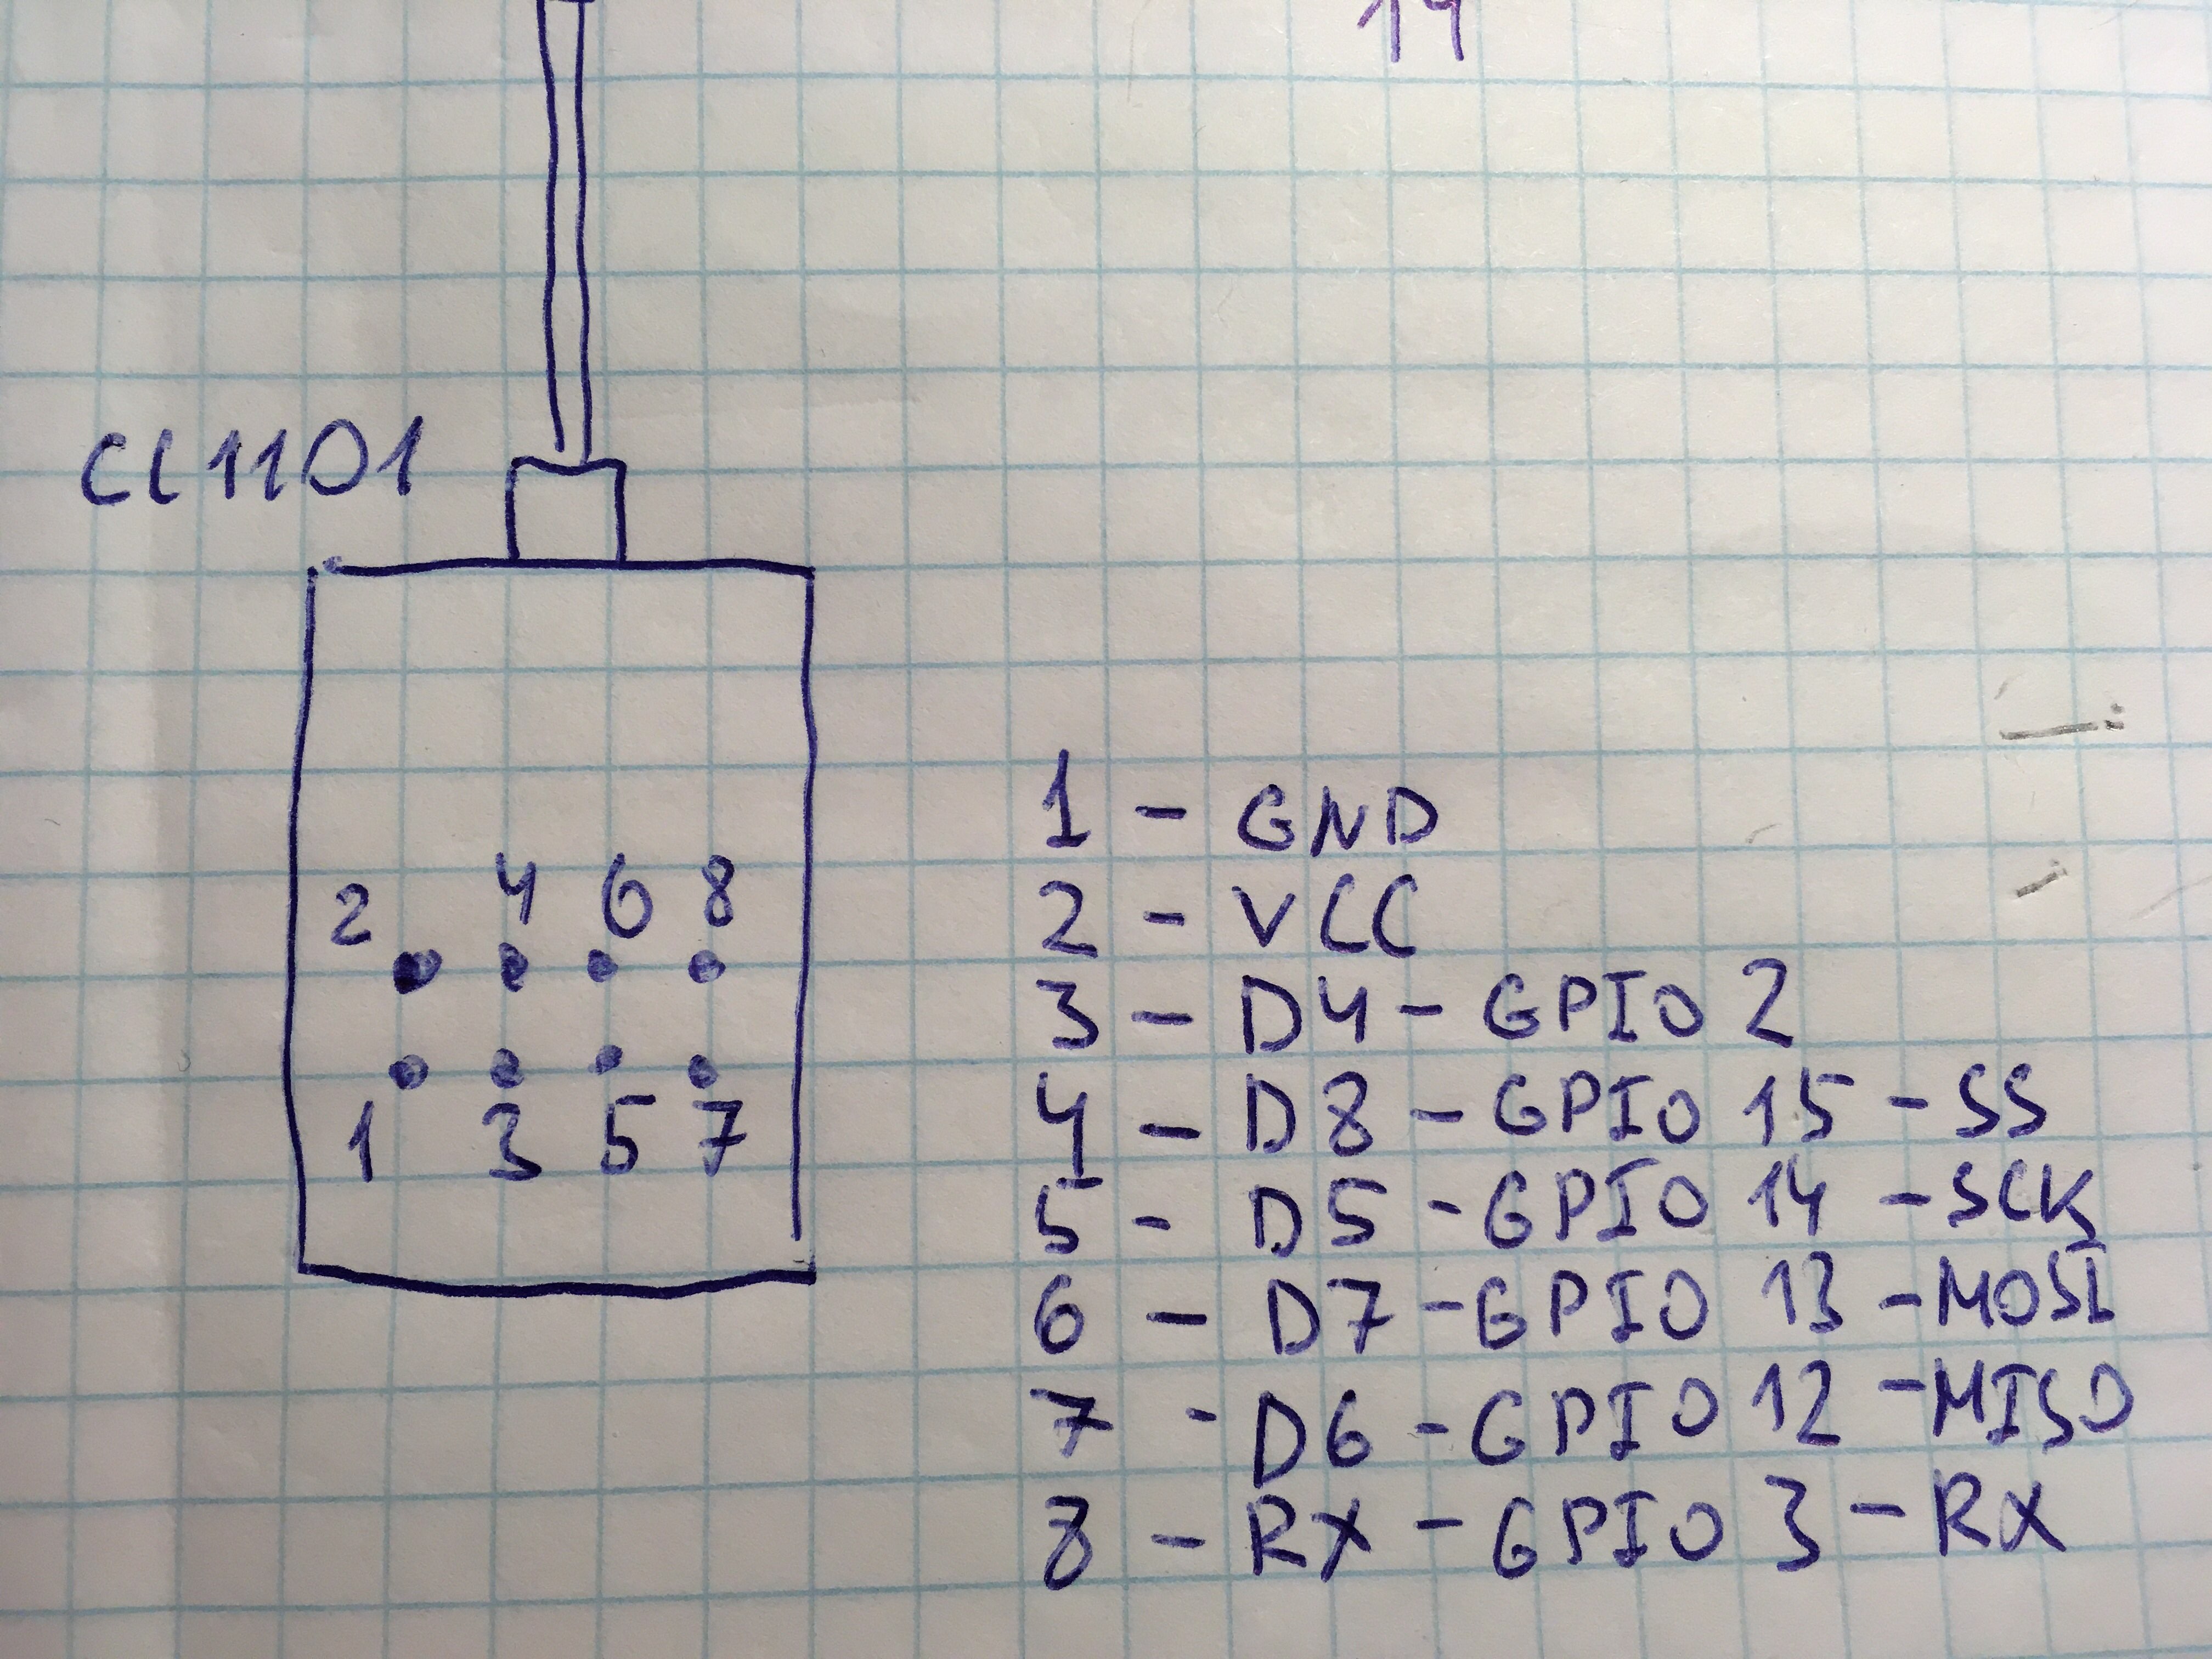 14
CC1101
2 4 6 8
1 3 5 7
1 - GND
2 - VCC
3 - D4 - GPIO 2
4 - D8 - GPIO 15 - SS
5 - D5 - GPIO 14 - SCK
6 - D7 - GPIO 13 - MOSI
7 - D6 - GPIO 12 - MISO
8 - RX - GPIO 3 - RX